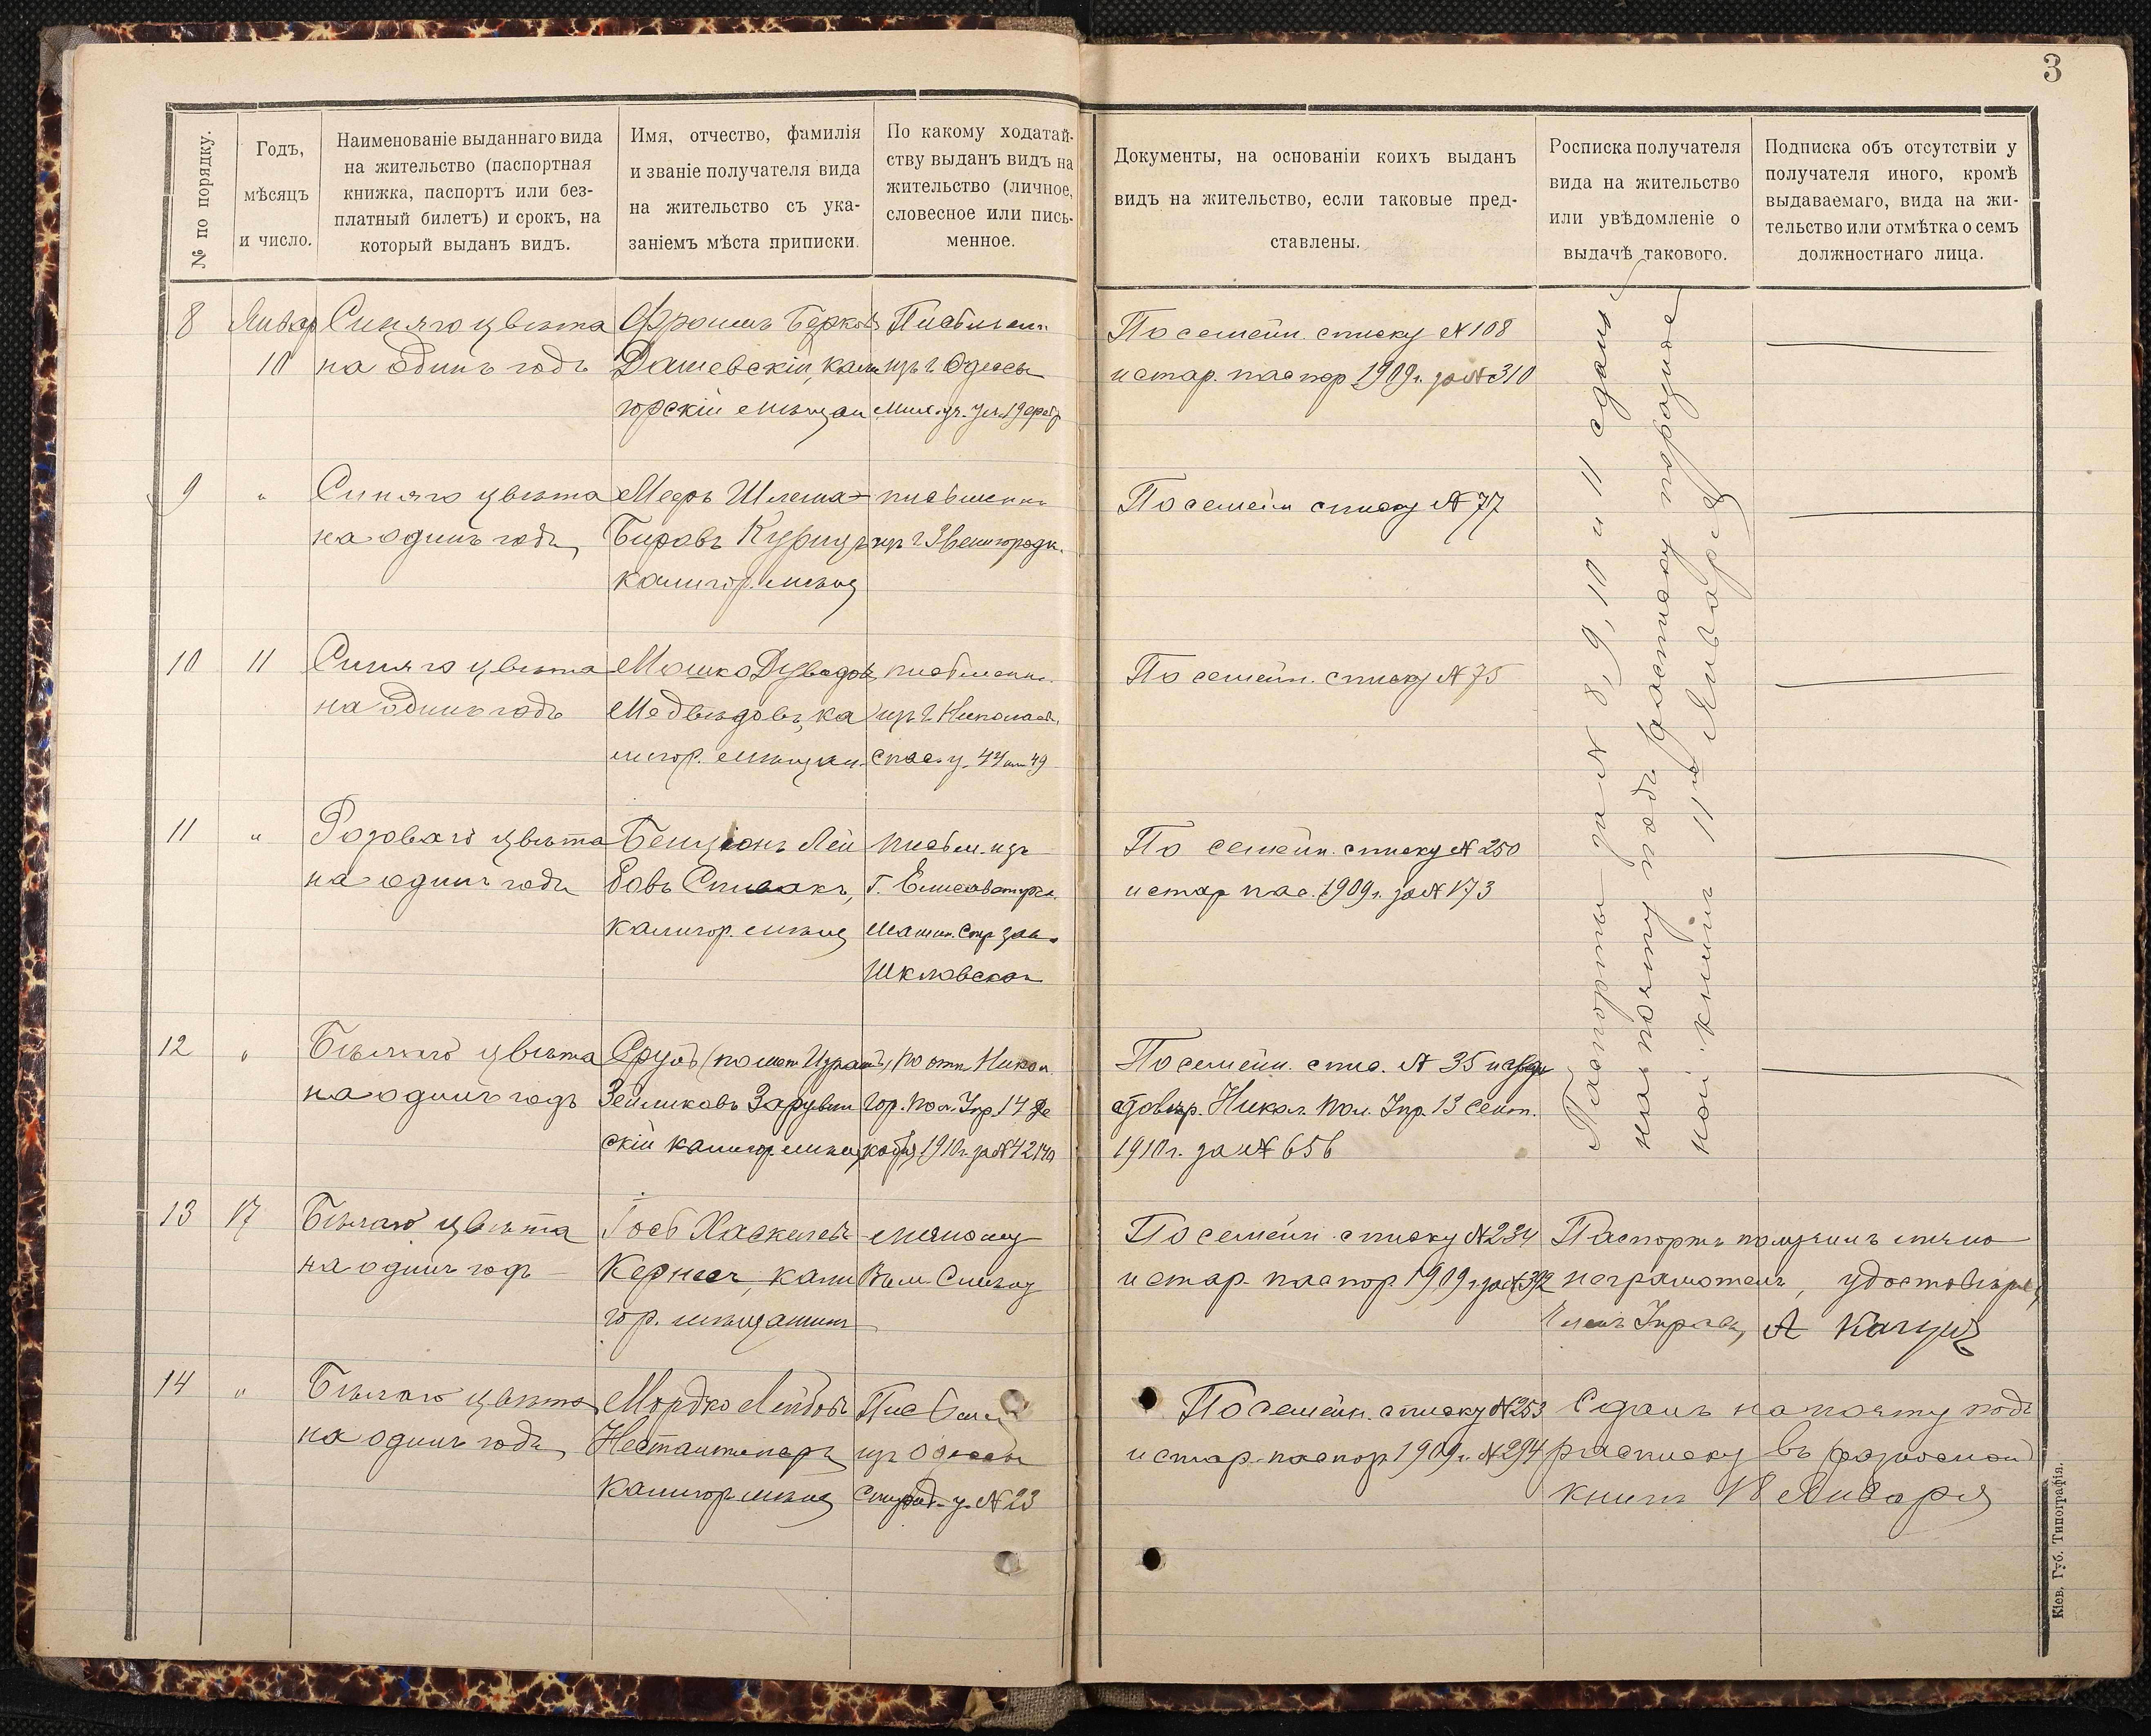 3
№ по порядку.
Годъ,
мѣсяцъ
и число.
Наименованіе выданнаго вида
на жительство (паспортная
книжка, паспортъ или без-
платный билетъ) и срокъ, на
который выданъ видъ.
Имя, отчество, фамилія
и званіе получателя вида
на жительство съ ука-
заніемъ мѣста приписки.
По какому ходатай-
ству выданъ видъ на
жительство (личное,
словесное или пись-
менное.
Документы, на основаніи коихъ выданъ
видъ на жительство, если таковые пред-
ставлены.
Росписка получателя
вида на жительство
или увѣдомленіе о
выдачѣ такового.
Подписка объ отсутствіи у
получателя иного, кромѣ
выдаваемаго, вида на жи-
тельство или отмѣтка о семъ
должностнаго лица.
8
Январ
10
Синяго цвѣта
на одинъ годъ
Фроимъ Берковъ
Дашевскій, кали
горскій мѣщан
Письмен.
изъ г. Одессы
По семейн. списку № 108
и стар. паспор 1909 г. за № 310
9
"
Синяго цвѣта
на одинъ годъ,
Мееръ Шлема-
Бировъ Курицъ
калигор. мѣщ
письменно
изъ г. Звенигородк.
По семейн списку № 77
10
11
Синяго цвѣта
на одинъ годъ
Мошко Дувидовъ
Медвѣдовъ, ка
лигор. мѣщан.
письменно.
изъ г. Николаев.
Спас. у. 44 49
По семейн. списку № 75
11
"
Розоваго цвѣта
на одинъ годъ
Бенціонъ Лей
бовъ Спивакъ,
калигор. мѣщ
письм. изъ
г. Елисаветгр.
Машин. Стр. зав.
Шкловскаг
По семейн. списку № 250
и стар пас. 1909 г. за № 173
Паспорты за № 8, 9, 10 и 11 сданы
на почту подъ росписку по разнос
ной книгѣ 11го Января
12
"
Бѣлаго цвѣта
на одинъ годъ
Сруль (по мет. Израиль)
Зейликовъ Зарувин
скій калигор. мѣщ
По отн. Никол.
Гор. Пол. Упр. 14 Де
кабря 1910 г. за № 42140
По семейн. спис. № 35 и
Никол. Пол. Упр. 13 Сент.
1910 г. за № 656
13
17
Бѣлаго цвѣта
на одинъ годъ
Госб Хаскелев
Кернесъ, кали
гор. мѣщанинъ
личному
По семейн. списку № 234
и стар. паспор 1909 г. за № 392
Паспортъ получилъ лично
неграмотенъ, удостовѣряю
Членъ Управы, А
14
"
Бѣлаго цвѣта
на одинъ годъ,
Мордко Лейбовъ
Нестантенеръ
калигор. мѣщ
Письмен
изъ Одессы
у. № 23
По семейн. списку № 253
и стар. паспор 1909 г. № 294
Сданъ на почту подъ
расписку въ разносной
книгѣ 18 Января
Кіев. Губ. Типографія.